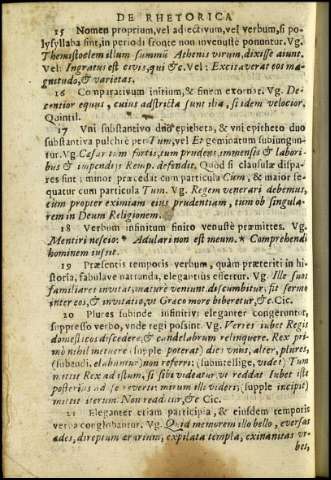 DE RHETORICA
15 Nomen proprium, vel adiectivum, vel verbum, si po-
lysyllaba sint, in periodi fronte non invenuste ponuntur. Vg.
Themistoclem illum summũ Athenis virum, dixisse aiunt.
Vel: Ingratus est civis, qui &c. Vel: Excitaverat eos ma-
gnitudo, & varietas.
16 Comparativum initium, & finem exornat. Vg. De-
centior equus, cuius adstricta sunt ilia, si idem velocior.
Quintil.
17 Vni substantivo duo epitheta, & vni epitheto duo
substantiva pulchrè per Tum, vel Et geminatum subiungun-
tur. Vg. Cæsar tum fortis, tum prudens, immensis & labori-
bus & impendijs Remp. defendit. Quod si clausulæ dispa-
res sunt; minor præcedat cum particula Cum, & maior se-
quatur cum particula Tum. Vg. Regem venerari debemus,
cùm propter eximiam eius prudentiam, tum ob singula-
rem in Deum Religionem.
18 Verbum infinitum finito venustè præmittes. Vg.
Mentiri nescio: * Adulari non est meum. * Comprehendi
hominem iussit.
19 Præsentis temporis verbum, quàm præteriti in hi-
storia, fabulave narranda, elegantiùs effertur. Vg. Ille suos
familiares invitat, maturè veniunt, discumbitur; fit sermo
inter eos, & invitatio, vt Græco more biberetur, &c. Cic.
20 Plures subinde infinitivi eleganter congeruntur,
suppresso verbo, vnde regi possint. Vg. Verres iubet Regis
domesticos discedere, & candelabrum relinquere. Rex pri-
mò nihil metuere (supple poterat) dies vnus, alter, plures,
(subaudi, elabuntur) non referri: (subintellige, videt) Tum
mittit Rex ad illum, si sibi videatur, vt reddat Iubet iste
posteriùs ad se reverti: mirum illi videri; supple incipit)
mittit iterum. Non redditur, &c Cic.
21 Eleganter etiam participia, & eiusdem temporis
verba conglobantur. Vg. Quid memorem illo bello, eversas
ædes, direptum ærarium, expilata templa, exinanitas vr-
bes,